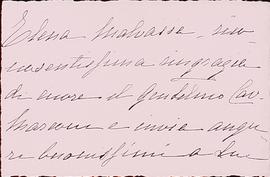 Elena Malvasse, rico
noscentissima ringrazia
di cuore il gentilmo Cav.
Marconi e invia augu
ri buonissimi a Lui